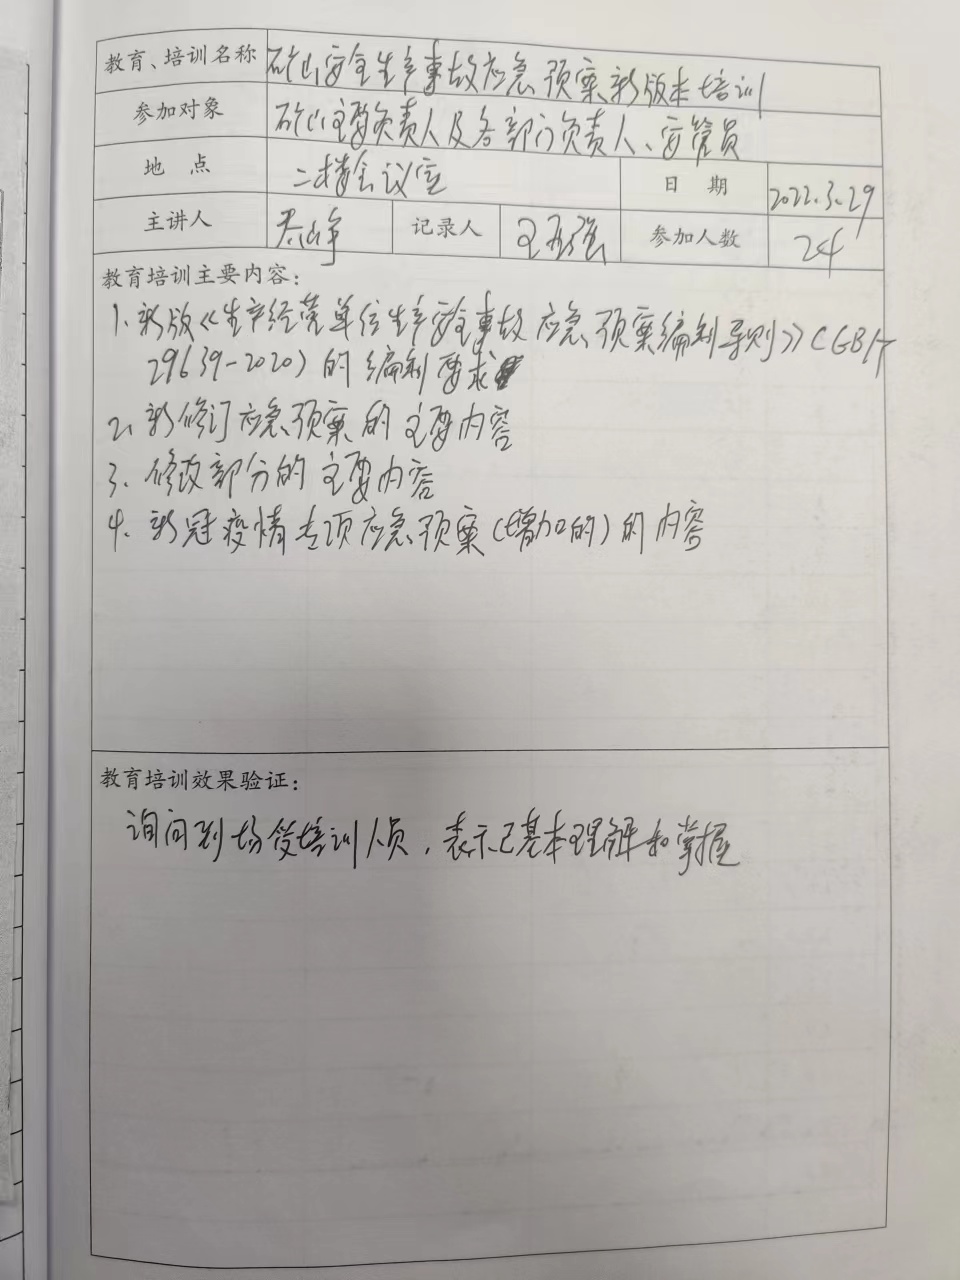 教育、培训名称 矿山安全生产事故应急预案新版本培训
参加对象 矿山主要负责人及各部门负责人、安管员
地 点 二楼会议室 日 期 2022.3.29
主讲人 记录人 参加人数 24
教育培训主要内容：
1、新版《生产经营单位生产安全事故应急预案编制导则》（GB/T
29639-2020）的编制要求
2、新修订应急预案的主要内容
3、修改部分的主要内容
4、新冠疫情专项应急预案（增加的）的内容
教育培训效果验证：
询问到场受培训人员，表示已基本理解和掌握